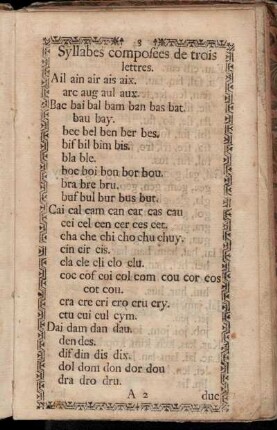 3
Syllabes composées de trois
lettres.
Ail ain air ais aix.
arc aug aul aux.
Bac bai bal bam ban bas bat.
bau bay.
bec bel ben ber bes.
bif bil bim bis.
bla ble.
boc boi bon bor bou.
bra bre bru.
buf bul bur bus but.
Cai cal cam can car cas cau
cei cel cen cer ces cet.
cha che chi cho chu chuy.
cin cir cis.
cla cle cli clo clu.
coc cof coi col com cou cor cos
cot cou.
cra cre cri cro cru cry.
ctu cui cul cym.
Dai dam dan dau.
den des.
dif din dis dix.
dol dom don dor dou
dra dro dru.
A 2 duc